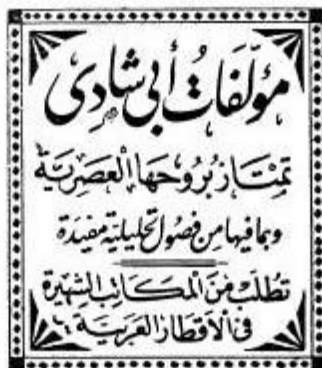 مؤلّفاتُ أبي شادي
تمتاز بروحها العصريّة
وبما فيها من فصول تحليليّة مفيدة
تطلب من المكاتب الشهيرة
في الأقطار العربيّة